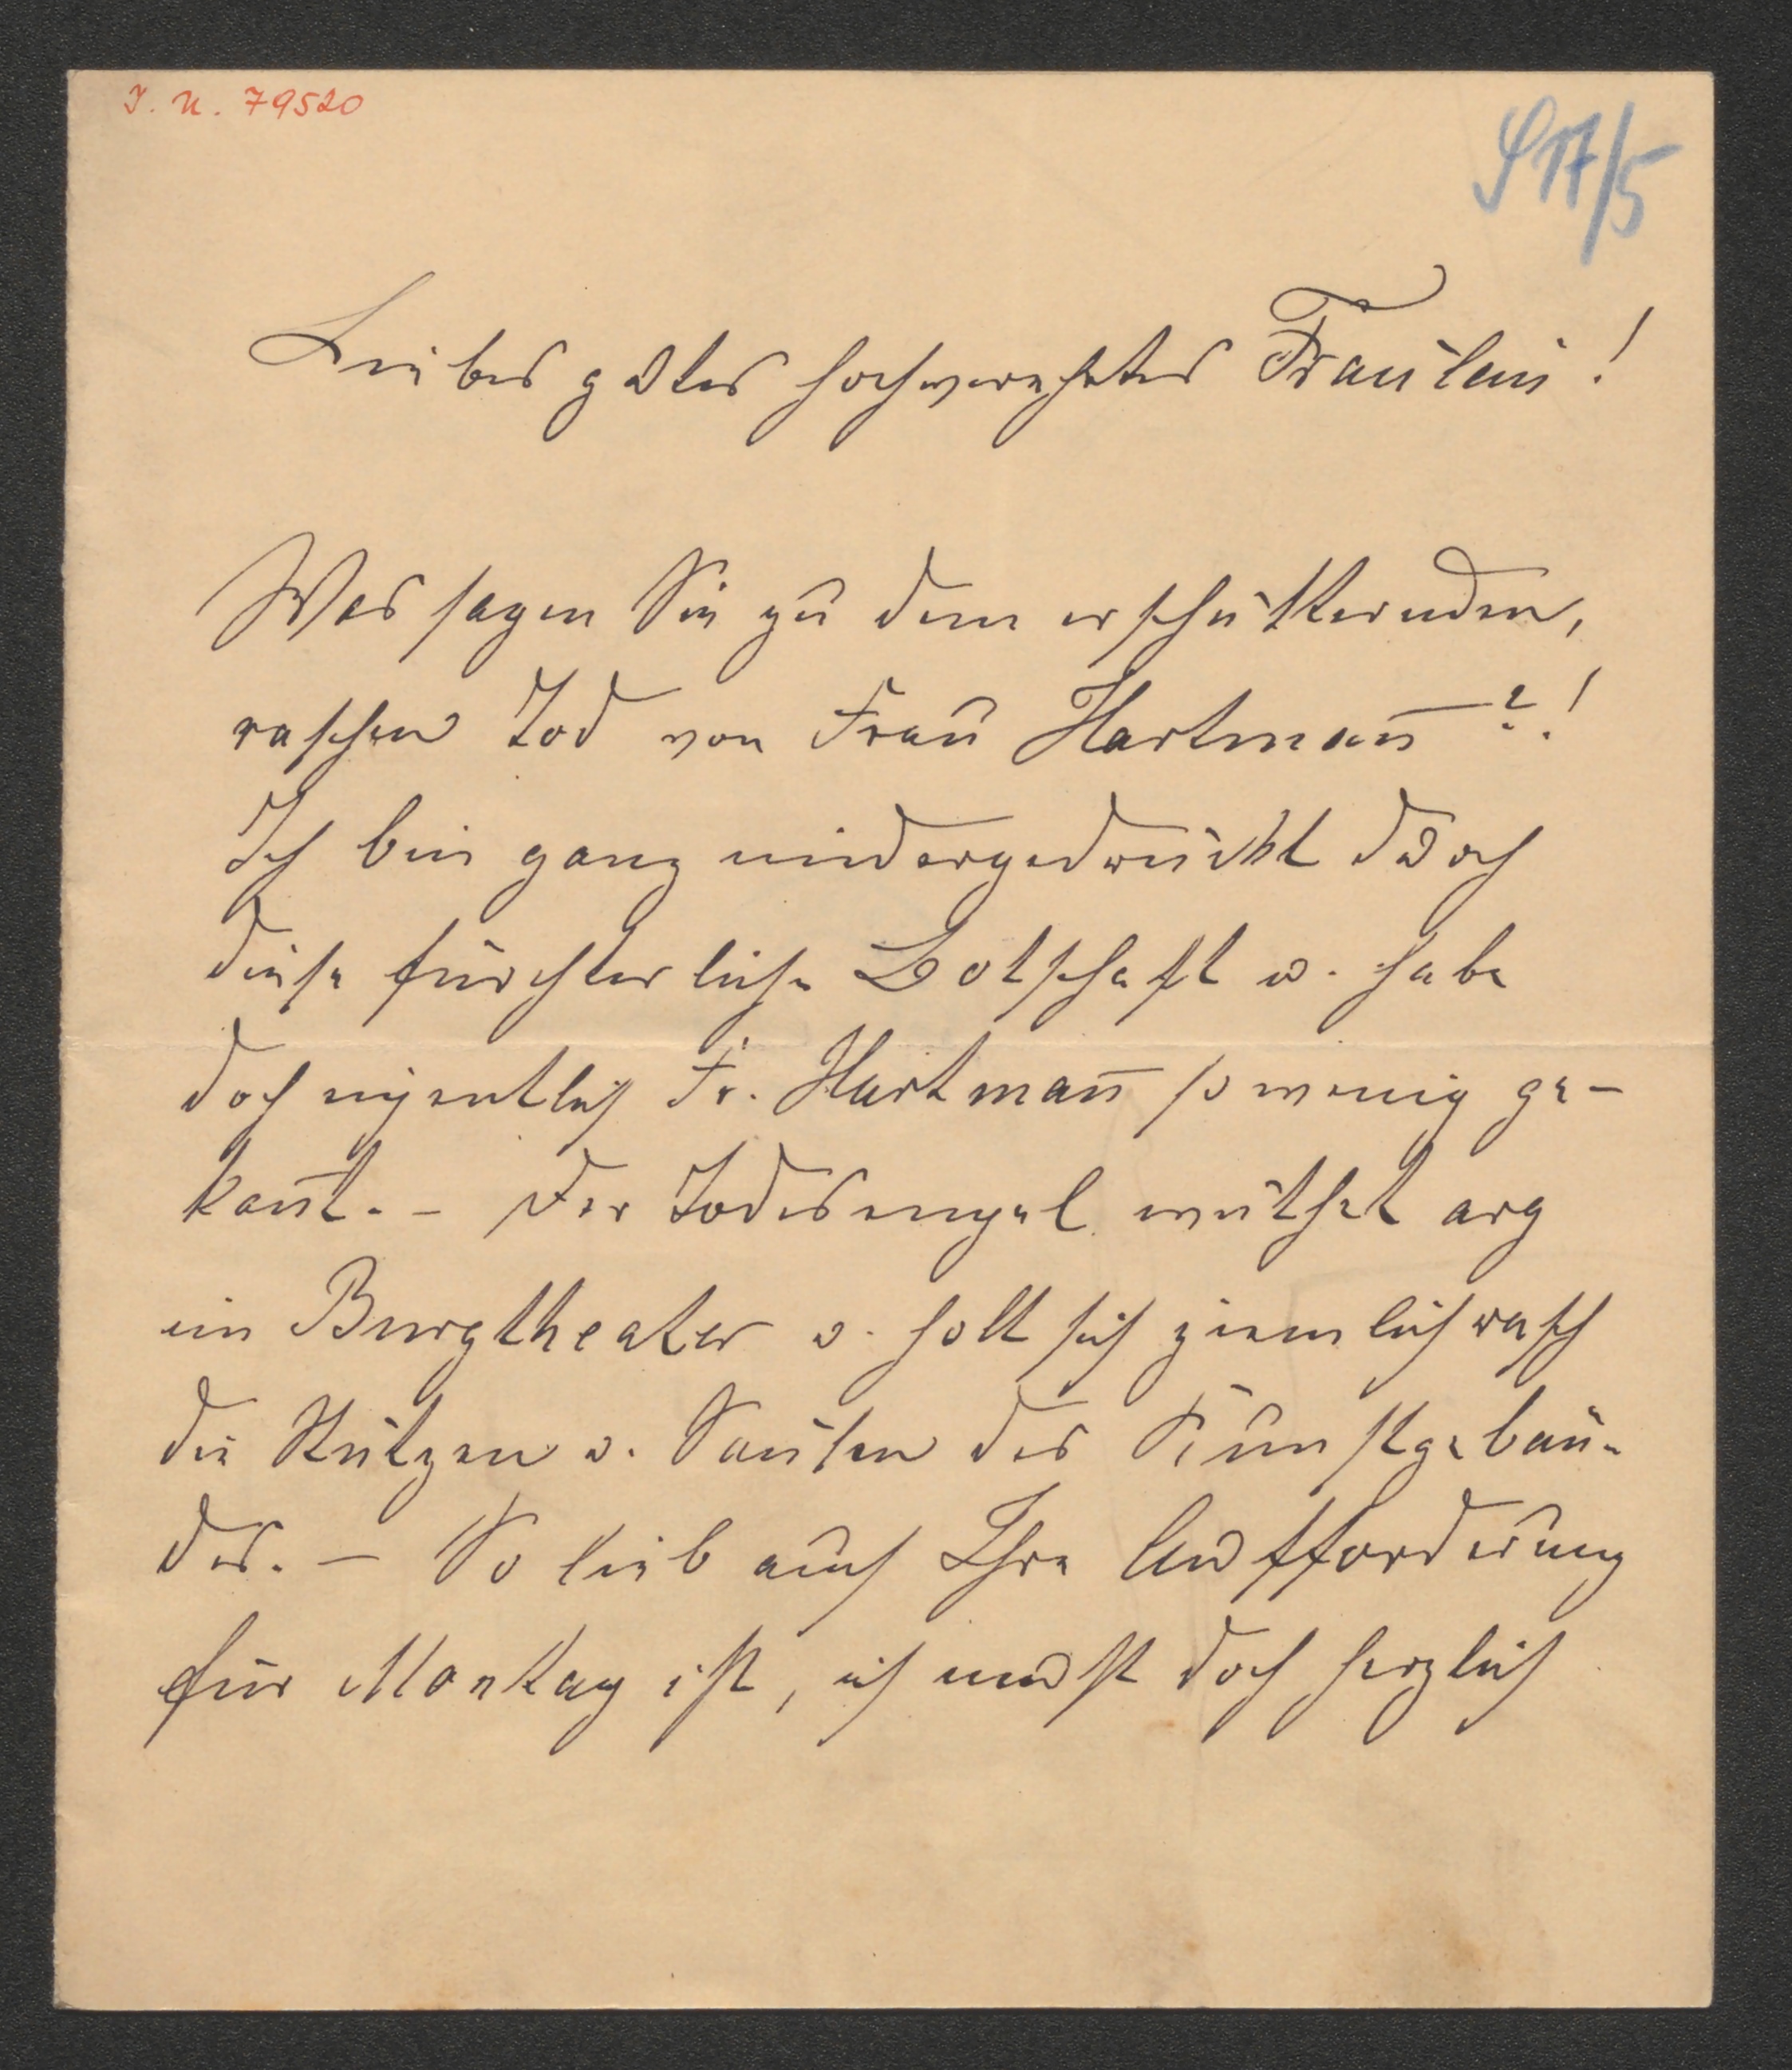 I. N. 79520
S 17/5
Liebes gutes hochverehrtes Fräulein!
Was sagen Sie zu dem erschütternden,
raschen Tod von Frau Hartman̅ ?!
Ich bin ganz niedergedrückt durch
diese fürchterliche Botschaft u. habe
doch eigentlich Fr. Hartman̅ so wenig ge-
kan̅t. – Der Todesengel wüthet arg
im Burgtheater u. holt sich ziemlich rasch
die Stützen u. Säulen des Kunstgebäu-
des. – So lieb auch Ihre Aufforderung
für Montag ist, ich muß doch herzlich